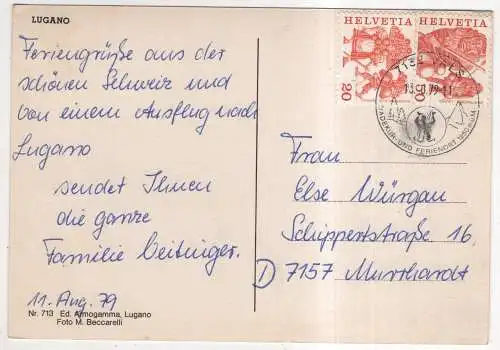 LUGANO
Feriengrüße aus der
schönen Schweiz und
von einem Ausflug nach
Lugano
sendet Ihnen
die ganze
Familie Beitinger.
11. Aug. 79
Nr. 713 Ed. Armogamma, Lugano
Foto M. Beccarelli
HELVETIA
HELVETIA
20
20
7132 VALS
13. 79-11
BADEKUR- UND FERIENORT 1250 M.ü.M.
Frau
Else Würgau
Schippertstraße 16
D 7157 Murrhardt